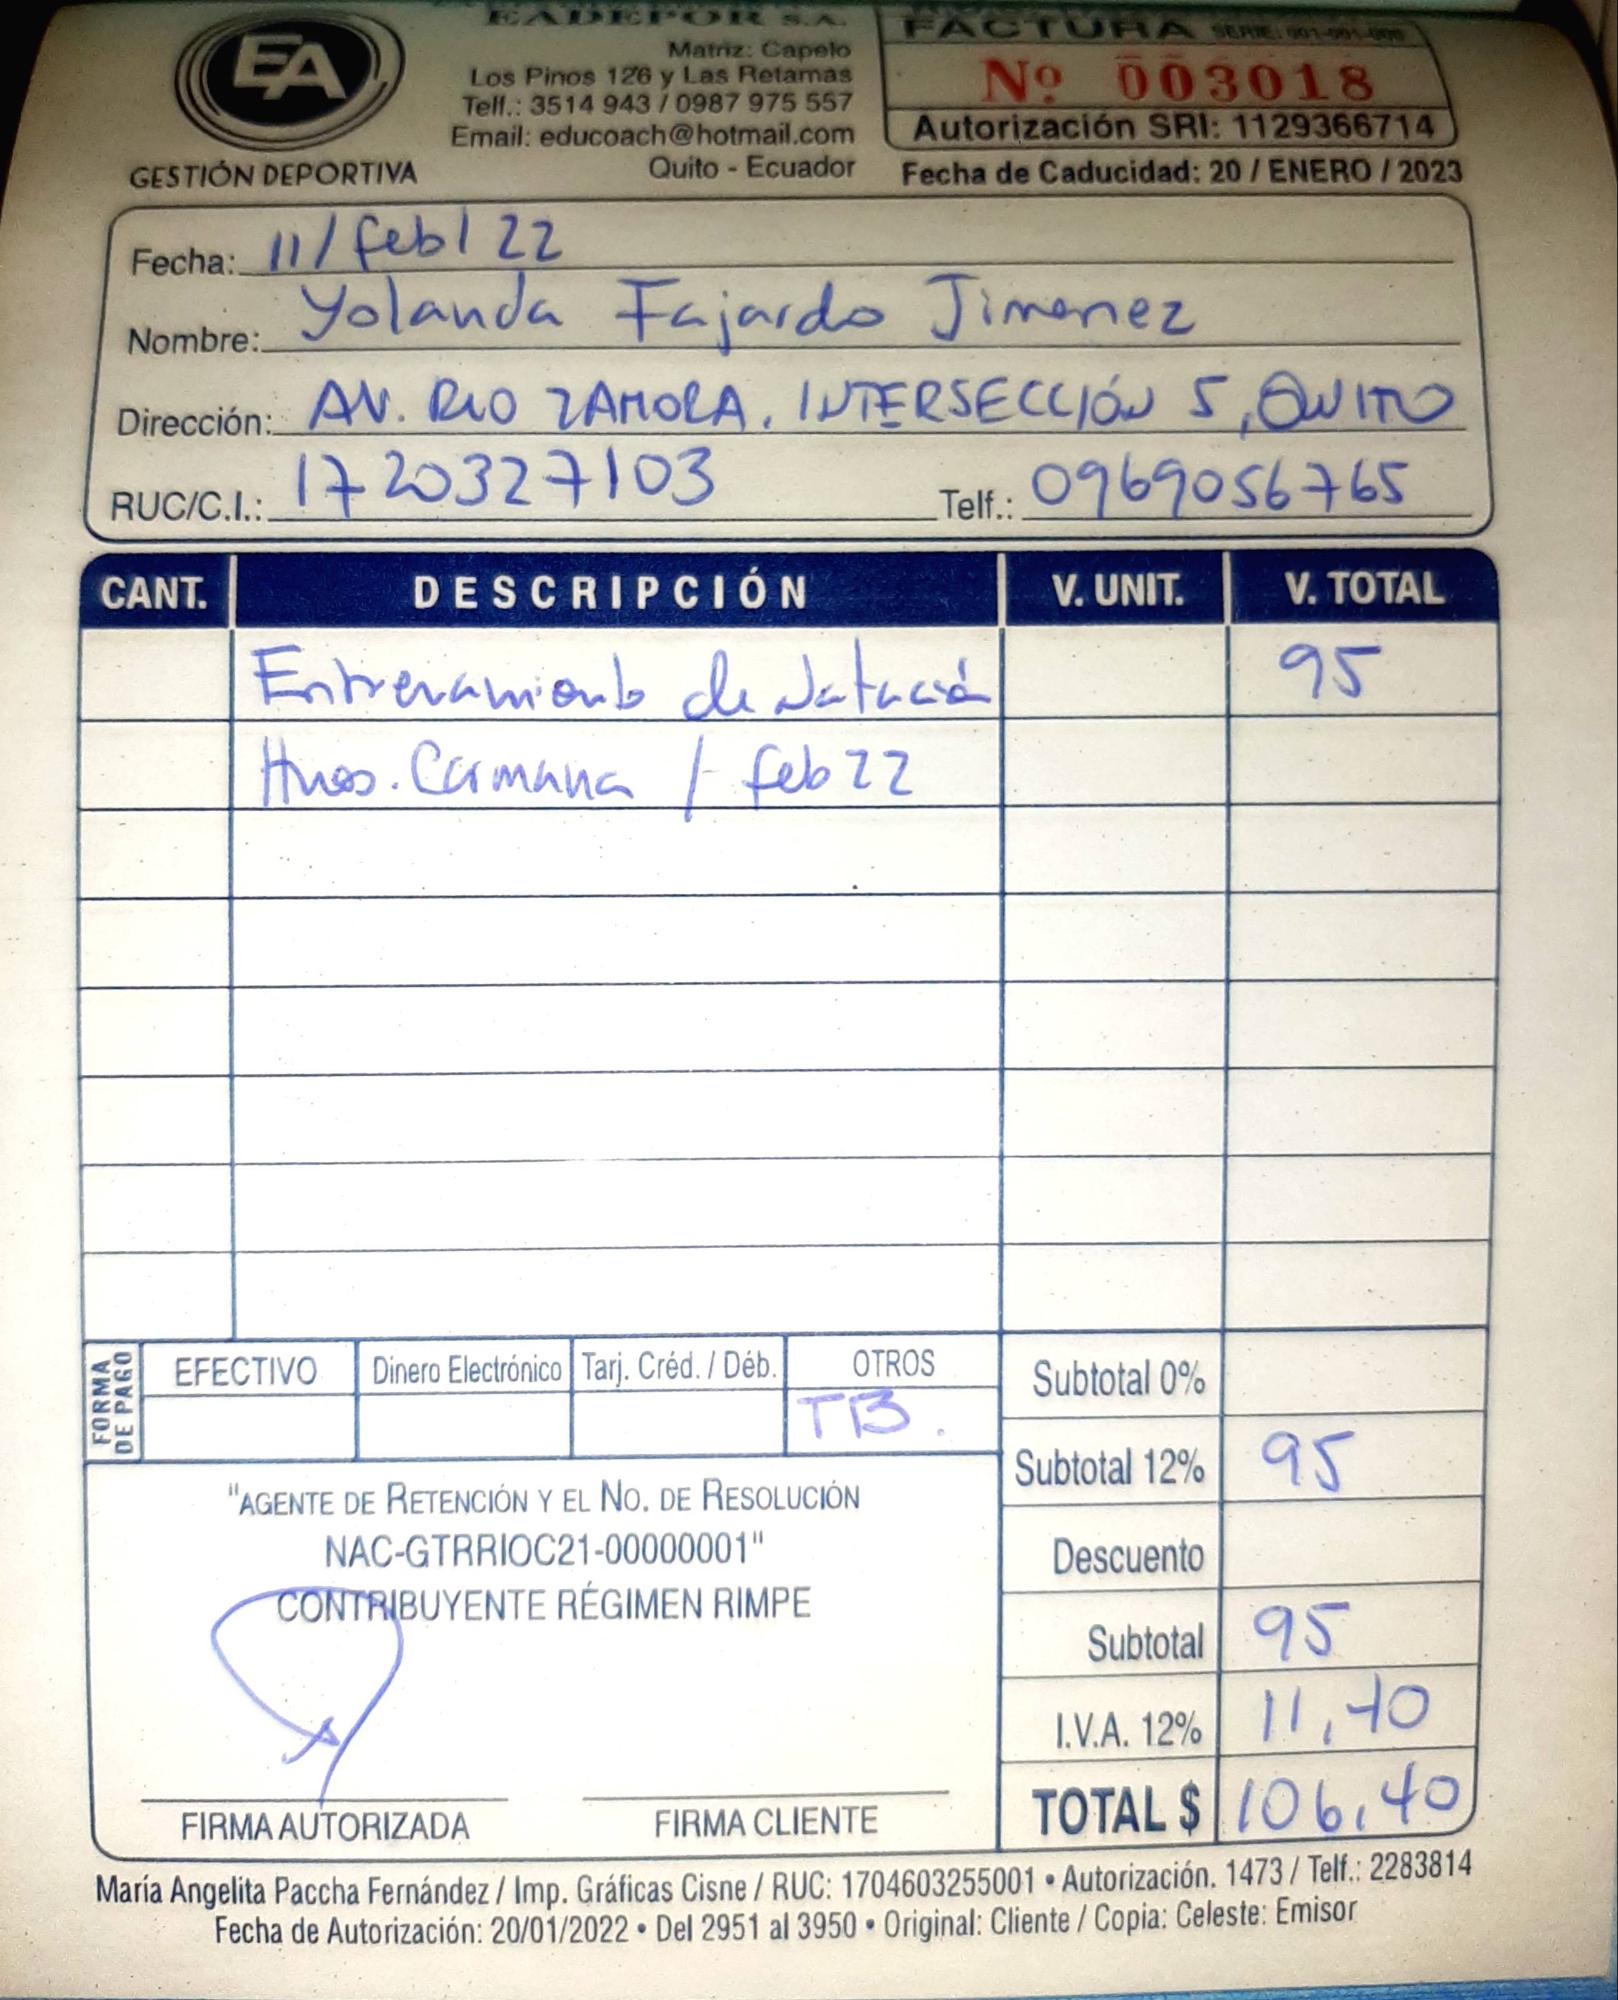 EADEPOR S.A.
EA
GESTIÓN DEPORTIVA
Matriz: Capelo
Los Pinos 126 y Las Retamas
Telf.: 3514 943 / 0987 975 557
Email: educoach@hotmail.com
Quito - Ecuador
FACTURA SERIE: 001-001-000
Nº 003018
Autorización SRI: 1129366714
Fecha de Caducidad: 20 / ENERO / 2023
Fecha: 11/feb/22
Nombre: Yolanda Fajardo Jimenez
Dirección: AV. RIO ZAMORA, INTERSECCIÓN 5, QUITO
RUC/C.I.: 1720327103 Telf.: 0969056765
CANT. DESCRIPCIÓN V. UNIT. V. TOTAL
Entrenamiento de Natación 95
Hnos. Carmana / feb 22
FORMA DE PAGO
EFECTIVO Dinero Electrónico Tarj. Créd. / Déb. OTROS
TB.
Subtotal 0%
Subtotal 12% 95
Descuento
Subtotal 95
I.V.A. 12% 11,40
TOTAL $ 106,40
"AGENTE DE RETENCIÓN Y EL NO. DE RESOLUCIÓN
NAC-GTRRIOC21-00000001"
CONTRIBUYENTE RÉGIMEN RIMPE
FIRMA AUTORIZADA FIRMA CLIENTE
María Angelita Paccha Fernández / Imp. Gráficas Cisne / RUC: 1704603255001 • Autorización. 1473 / Telf.: 2283814
Fecha de Autorización: 20/01/2022 • Del 2951 al 3950 • Original: Cliente / Copia: Celeste: Emisor